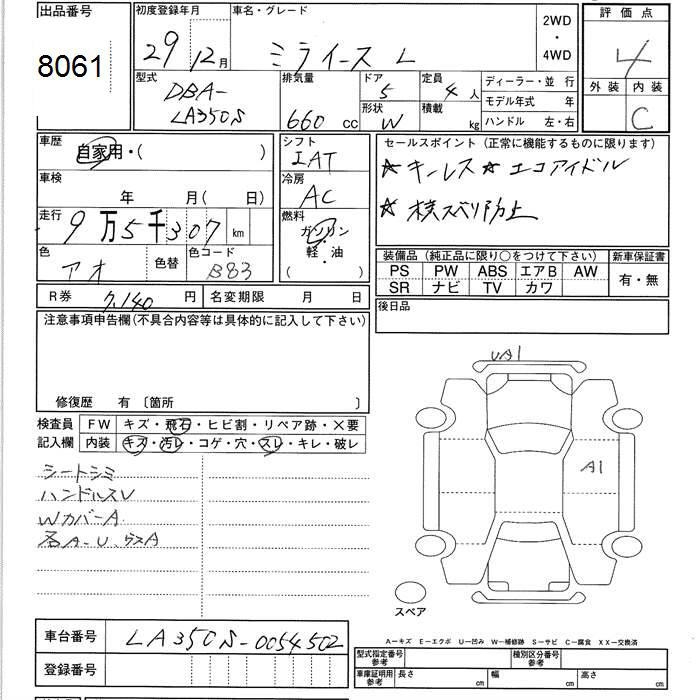 出品番号
8061
初度登録年月
29 12月
車名・グレード
ミライース L
2WD
・
4WD
評価点
4
外装 内装
C
型式
DBA-
LA350S
排気量
660 cc
ドア
5
形状
W
定員
4 人
積載
kg
ディーラー・並 行
モデル年式 年
ハンドル 左・右
車歴
自家用・( )
車検
年 月( 日)
走行
9 万 5 千 307 km
色
アオ
色替
色コード
B83
シフト
IAT
冷房
AC
燃料
ガソリン
・
軽・油
( )
セールスポイント (正常に機能するものに限ります)
☆ キーレス ☆ エコアイドル
☆ 横スベリ防止
装備品 (純正品に限り○をつけて下さい)
PS PW ABS エアB AW
SR ナビ TV カワ
新車保証書
有・無
R券 7,140 円
名変期限 月 日
後日品
注意事項申告欄(不具合内容等は具体的に記入して下さい)
修復歴 有 〔箇所 〕
検査員
記入欄
FW キズ・飛石・ヒビ割・リペア跡・×要
内装 キズ・汚レ・コゲ・穴・スレ・キレ・破レ
シートシミ
ハンドルスレ
WカバーA
各A-U、
UA1
A1
スペア
A－キズ E－エクボ U－凹み W－補修跡 S－サビ C－腐食 XX－交換済
車台番号 LA350S-0054502
登録番号
型式指定番号
参考
種別区分番号
参考
車庫証明用
参考
長さ cm
幅 cm
高さ cm